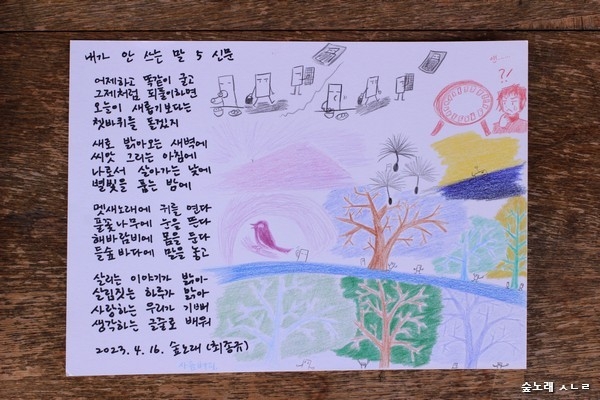 내가 안 쓰는 말 5 신문
어제하고 똑같이 굴고
그제처럼 되풀이하면
오늘이 새롭기보다는
쳇바퀴를 돌겠지
새로 밝아오는 새벽에
씨앗 그리는 아침에
나로서 살아가는 낮에
별빛을 품는 밤에
멧새노래에 귀를 연다
풀꽃나무에 눈을 뜬다
해바람비에 몸을 둔다
들숲바다에 말을 놓고
살리는 이야기가 밝아
살림짓는 하루가 맑아
사랑하는 우리가 기뻐
생각하는 글줄로 배워
2023. 4. 16. 숲노래 (최종규)
?!
숲노래 ㅅㄴㄹ